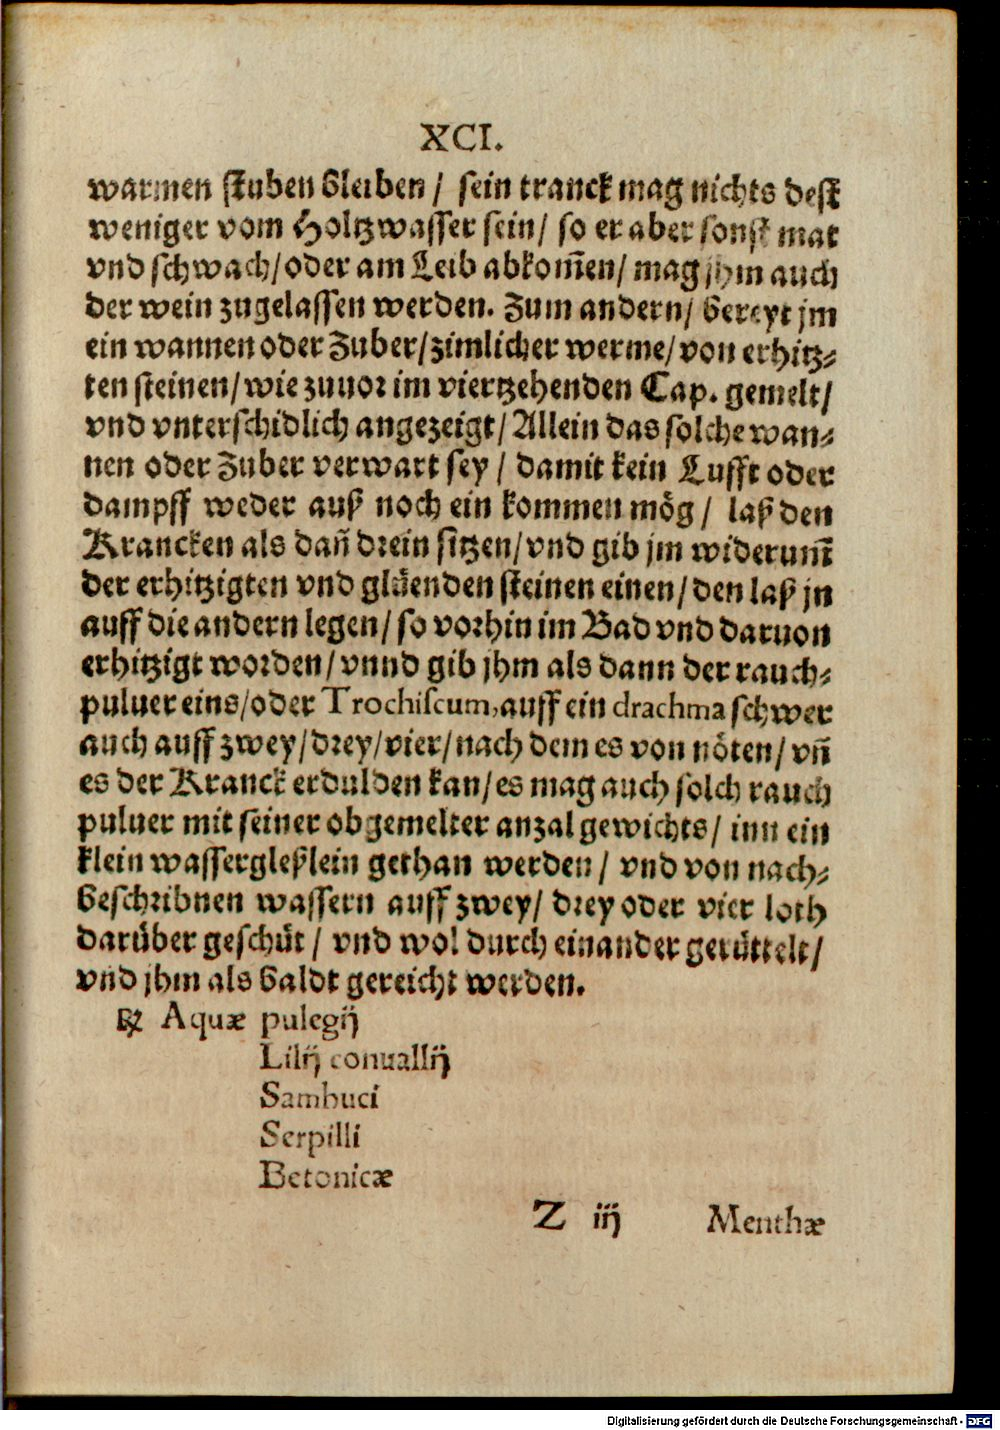 XCI.
warmen stuben bleiben / sein tranck mag nichts dest
weniger vom Holtzwasser sein / so er aber sonst mat
vnd schwach / oder am Leib abkom̃en / mag jhm auch
der wein zugelassen werden. Zum andern / bereyt jm
ein wannen oder Zuber / zimlicher werme / von erhitz⸗
ten steinen / wie zuuor im viertzehenden Cap. gemelt /
vnd vnterschidlich angezeigt / Allein das solche wan⸗
nen oder Zuber verwart sey / damit kein Lufft oder
dampff weder auß noch ein kommen mög / laß den
Krancken als dañ drein sitzen / vnd gib jm widerum̃
der erhitzigten vnd glüenden steinen einen / den laß jn
auff die andern legen / so vorhin im Bad vnd daruon
erhitzigt worden / vnnd gib jhm als dann der rauch⸗
puluer eins / oder Trochiscum, auff ein drachma schwer
auch auff zwey / drey / vier / nach dem es von nöten / vñ
es der Kranck erdulden kan / es mag auch solch rauch
puluer mit seiner obgemelter anzal gewichts / inn ein
klein wassergleßlein gethan werden / vnd von nach⸗
beschribnen wassern auff zwey / drey oder vier loth
darüber geschüt / vnd wol durch einander gerüttelt /
vnd jhm als baldt gereicht werden.
℞ Aquæ pulegij
Lilij conuallij
Sambuci
Serpilli
Betonicæ
Z iij Menthæ
Digitalisierung gefördert durch die Deutsche Forschungsgemeinschaft - DFG